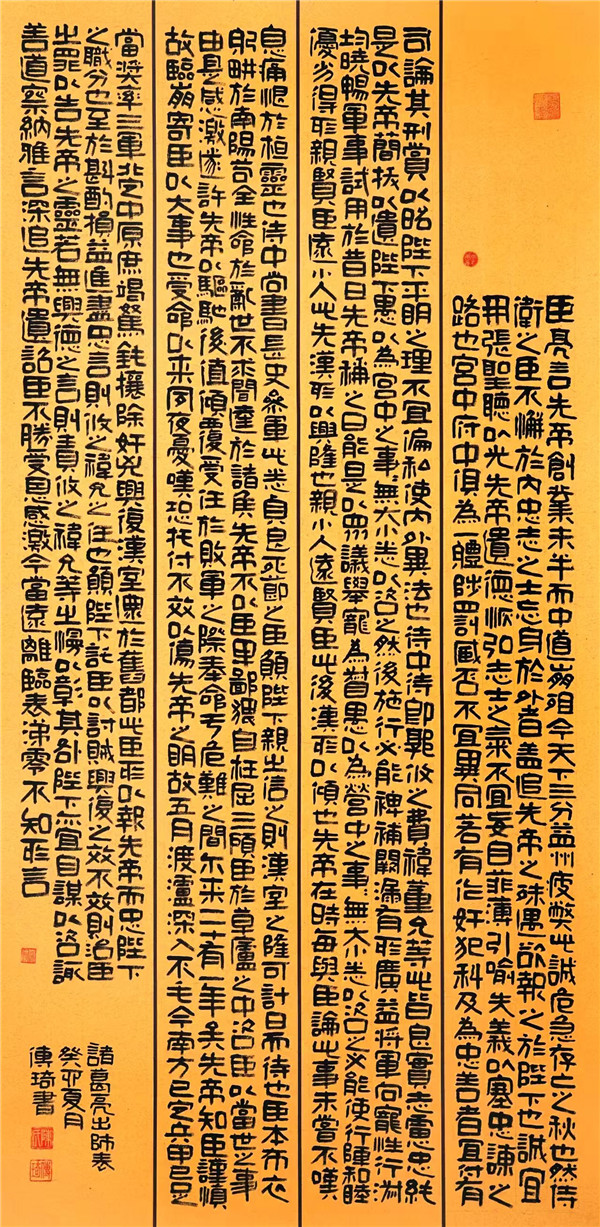 臣亮言先帝創業未半而中道崩殂今天下三分益州疲弊此誠危急存亡之秋也然侍
衛之臣不懈於內忠志之士忘身於外者蓋追先帝之殊遇欲報之於陛下也誠宜
開張聖聽以光先帝遺德恢弘志士之氣不宜妄自菲薄引喻失義以塞忠諫之
路也宮中府中俱為一體陟罰臧否不宜異同若有作奸犯科及為忠善者宜付有
司論其刑賞以昭陛下平明之理不宜偏私使內外異法也侍中侍郎郭攸之費禕董允等此皆良實志慮忠純
是以先帝簡拔以遺陛下愚以為宮中之事無大小悉以咨之然後施行必能裨補闕漏有所廣益將軍向寵性行淑
均曉暢軍事試用於昔日先帝稱之曰能是以眾議舉寵為督愚以為營中之事無大小悉以咨之必能使行陣和睦
優劣得所親賢臣遠小人此先漢所以興隆也親小人遠賢臣此後漢所以傾也先帝在時每與臣論此事未嘗不嘆
息痛恨於桓靈也侍中尚書長史參軍此悉貞良死節之臣願陛下親之信之則漢室之隆可計日而待也臣本布衣
躬耕於南陽苟全性命於亂世不求聞達於諸侯先帝不以臣卑鄙猥自枉屈三顧臣於草廬之中咨臣以當世之事
由是感激遂許先帝以驅馳後值傾覆受任於敗軍之際奉命於危難之間爾來二十有一年矣先帝知臣謹慎
故臨崩寄臣以大事也受命以來夙夜憂嘆恐托付不效以傷先帝之明故五月渡瀘深入不毛今南方已定兵甲已足
當獎率三軍北定中原庶竭駑鈍攘除奸兇興復漢室還於舊都此臣所以報先帝而忠陛下
之職分也至於斟酌損益進盡忠言則攸之禕允之任也願陛下託臣以討賊興復之效不效則治臣
之罪以告先帝之靈若無興德之言則責攸之禕允等之慢以彰其咎陛下亦宜自謀以咨諏
善道察納雅言深追先帝遺詔臣不勝受恩感激今當遠離臨表涕零不知所言
諸葛亮出師表
癸卯夏月
傳琦書